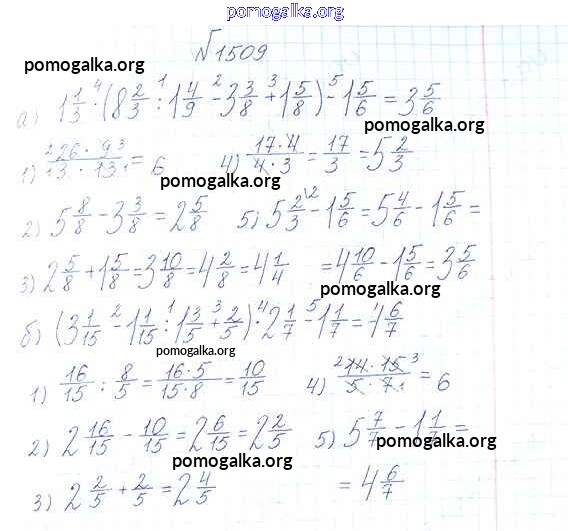 pomogalka.org
№1509
pomogalka.org
а) 1 1/3 · (8 2/3 : 1 4/9 - 3 3/8 + 1 5/8) - 1 5/6 = 3 5/6
pomogalka.org
1) 26 · 9 / 3 · 13 = 6 4) 17 · 4 / 4 · 3 = 17/3 = 5 2/3
pomogalka.org
2) 5 8/8 - 3 3/8 = 2 5/8 5) 5 2/3 - 1 5/6 = 5 4/6 - 1 5/6 =
3) 2 5/8 + 1 5/8 = 3 10/8 = 4 2/8 = 4 1/4 = 4 10/6 - 1 5/6 = 3 5/6
pomogalka.org
б) (3 1/15 - 1 1/15 : 1 3/5 + 2/5) · 2 1/7 - 1 1/7 = 4 6/7
pomogalka.org
1) 16/15 : 8/5 = 16 · 5 / 15 · 8 = 10/15 4) 14 · 15 / 5 · 7 = 6
2) 2 16/15 - 10/15 = 2 6/15 = 2 2/5 5) 5 7/7 - 1 1/7 =
pomogalka.org
pomogalka.org
3) 2 2/5 + 2/5 = 2 4/5 = 4 6/7